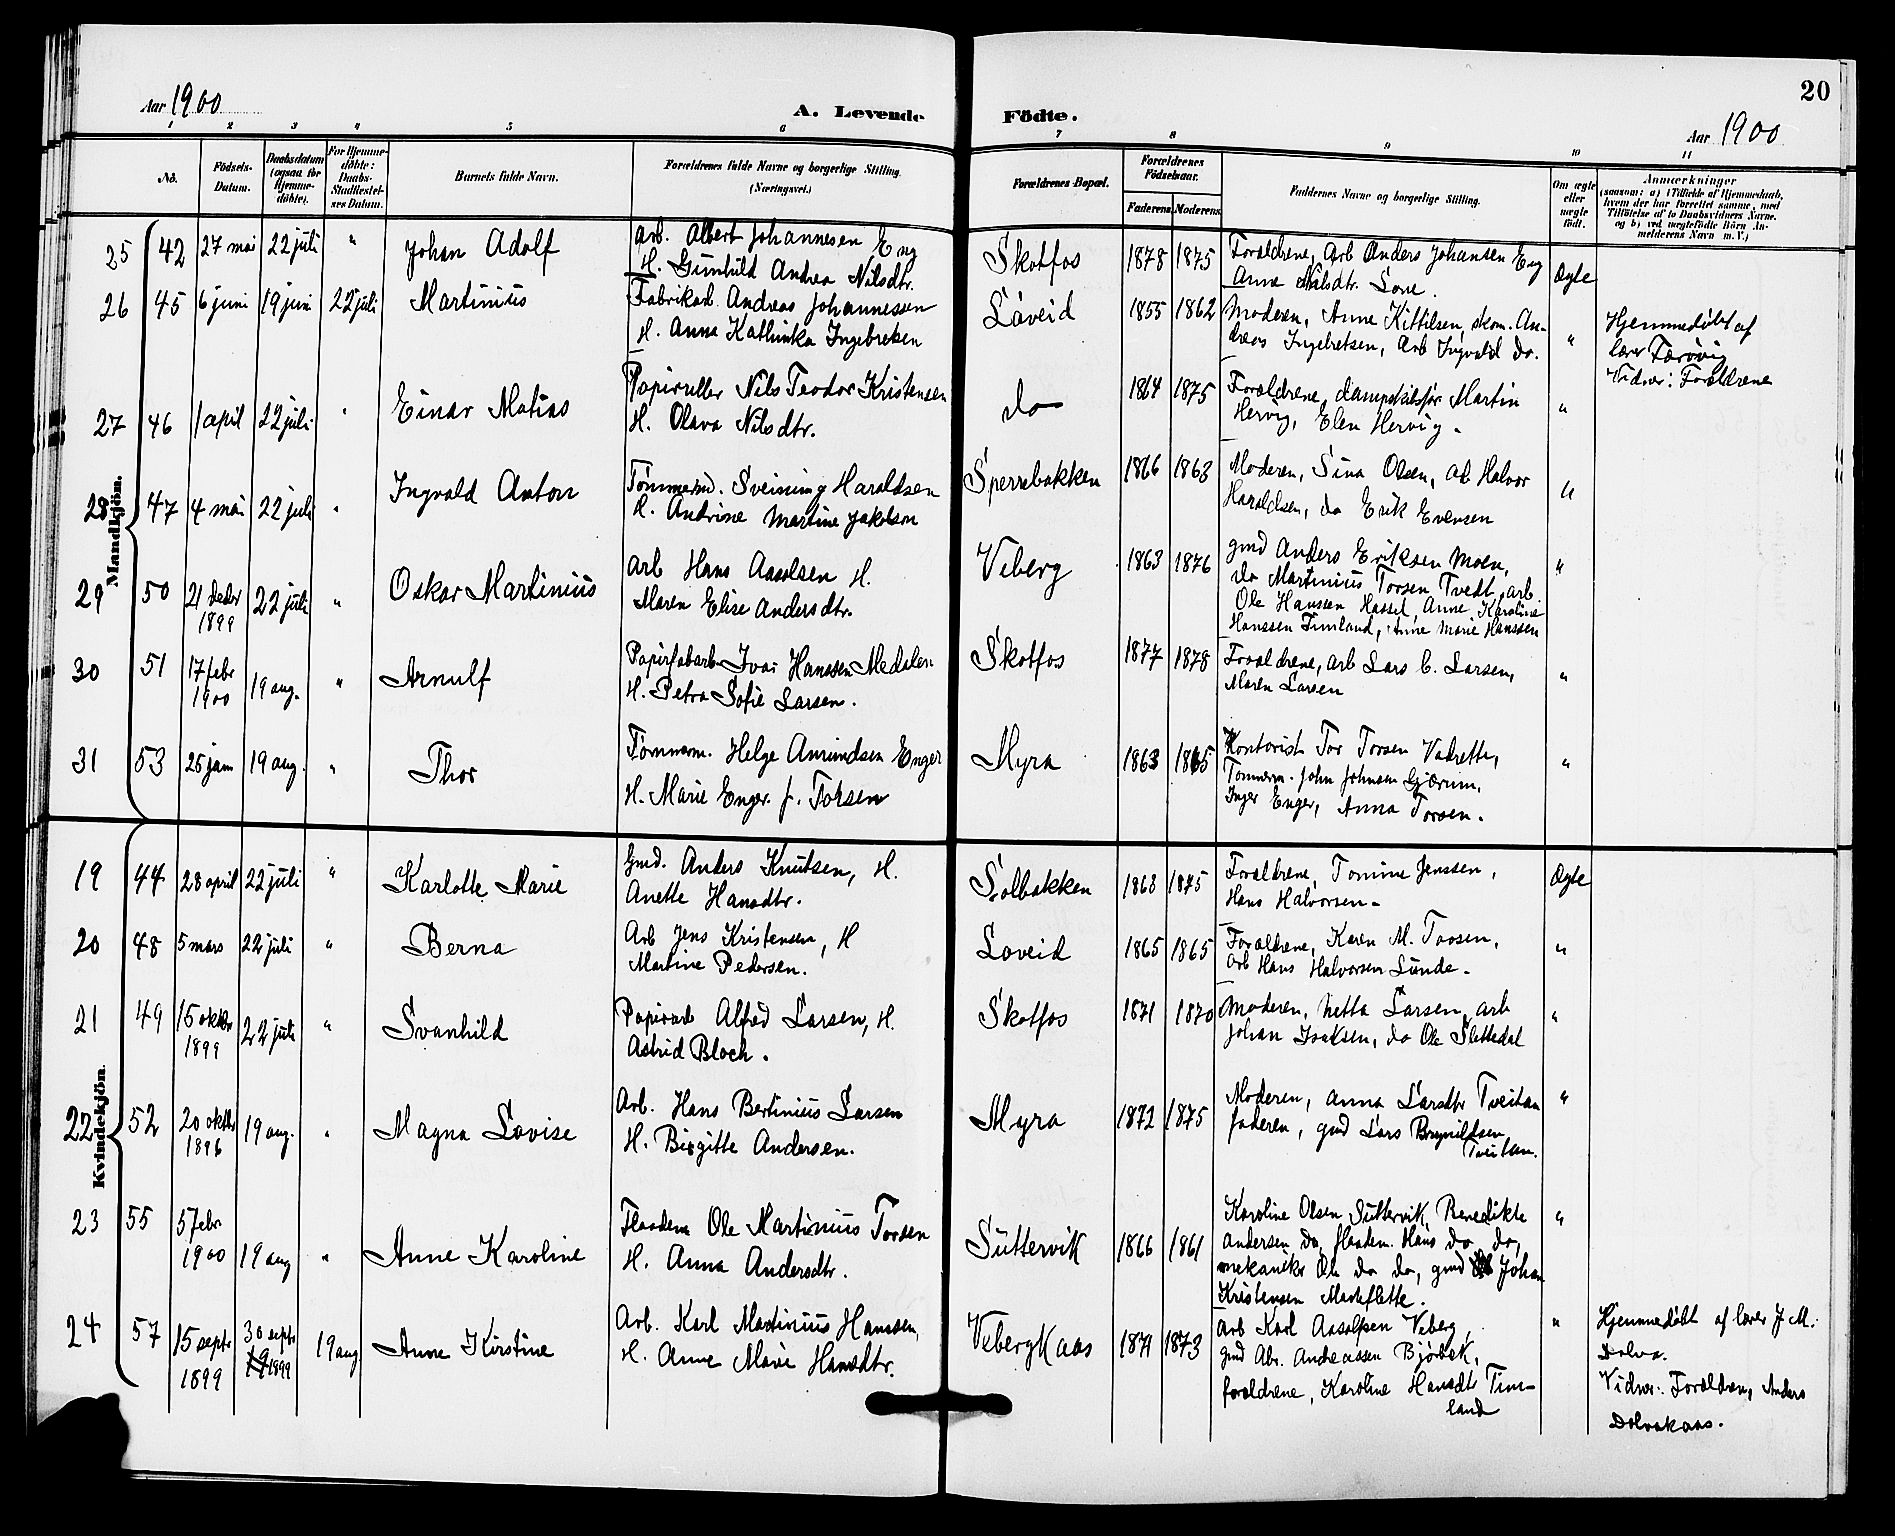 Aar 1900 A. Levende Födte. 20
Aar 1900
1 2 3 4 5 6 7 8 9 10 11
No. Födsels-Datum. Daabsdatum (ogsaa for Hjemme-døbte). For Hjemme-døbte: Daabs-Stadfæstel-ses Datum. Barnets fulde Navn. Forældrenes fulde Navne og borgerlige Stilling. (Næringsvei.) Forældrenes Bopæl. Forældrenes Födselsaar. Faderens Moderens Faddernes Navne og borgerlige Stilling. Om ægte eller uægte födt. Anmærkninger
(saasom: a) i Tilfælde af Hjemmedaab,
hvem der har forrettet samme, med
Tilföielse af to Daabsvidners Navne,
og b) ved uægtefödte Börn An-
melderens Navn m. V.)
Mandkjön.
25 42 27 mai 22 juli " Johan Adolf Arb. Albert Johannesen Eng
H. Gunhild Andrea Nilsdtr. Skotfos 1878 1875 Forældrene, Arb Anders Johansen Eng
Anne Nilsdtr. Lone. Ægte
26 45 6 juni 19 juni 22 juli Martinius Fabrikarb. Andreas Johannessen
H. Anna Kathinka Ingebretsen Løveid 1855 1862 Moderen, Anne Kittilsen, skom. An-
dreas Ingebretsen, Arb Ingvald do. " Hjemmedøbt af
lærer Færøvig
Vidner: Forældrene
27 46 1 april 22 juli " Einar Matias Papirruller Nils Teodor Kristensen
H. Olava Nilsdtr. do 1864 1875 Forældrene, dampskibsfør Martin
Hervig, Elen Hervig. "
28 47 4 mai 22 juli " Ingvald Anton Tømmerm. Sveining Haraldsen
H. Andrine Martine Jakobsen Sperrebakken 1866 1863 Moderen, Sina Olsen, Arb Halvor
Haraldsen, do Erik Evensen "
29 50 21 decbr
1899 22 juli " Oskar Martinius Arb Hans Aasolsen H.
Maren Elise Andersdtr. Viberg 1863 1876 gmd Anders Eriksen Moen,
do Martinius Torsen Tvedt, arb
Ole Hanssen Hassel, Anne Karoline
Hanssen Timland, Anne Marie Hanssen "
30 51 17 febr
1900 19 aug. " Arnulf Papirfabarb Ivar Hanssen Medalen
H. Petra Sofie Larsen. Skotfos 1877 1878 Forældrene, arb Lars C. Larsen,
Maren Larsen "
31 53 25 jan 19 aug. " Thor Tømmerm. Helge Amundsen Enger
H. Marie Enger f. Torsen Myra 1863 1865 Kontorist Tor Torsen Vadrette,
Tømmerm. John Johnsen Gjærum,
Inger Enger, Anna Torsen. "
Kvindekjön.
19 44 28 april 22 juli " Karlotte Marie Gmd. Anders Knutsen, H.
Anette Hansdtr. Solbakken 1863 1875 Forældrene, Tomine Jenssen,
Hans Halvorsen. Ægte
20 48 5 mars 22 juli " Berna Arb Jens Kristensen, H
Martine Pedersen. Løveid 1865 1865 Forældrene, Karen M. Torsen,
Arb Hans Halvorsen Lunde. "
21 49 15 oktbr
1899 22 juli " Svanhild Papirarb Alfred Larsen, H.
Astrid Bloch. Skotfos 1871 1870 Moderen, Netta Larsen, arb
Johan Isaksen, do Ole Slettedal "
22 52 20 oktbr
1896 19 aug. " Magna Lovise Arb. Hans Bertinius Larsen
H. Birgitte Andersen. Myra 1872 1875 Moderen, Anna Larsdtr Tveitan
faderen, gmd Lars Brynildsen
Tveitan. "
23 55 5 febr
1900 19 aug " Anne Karoline Flaadem Ole Martinius Torsen
H. Anna Andersdtr. Suttervik 1866 1861 Karoline Olsen Suttervik, Benedikte
Andersen do, flaatem. Hans do do,
mekaniker Ole do do, gmd Johan
Kristensen Mareflette. "
24 57 15 septr
1899 30 septr
1899 19 aug Anne Kirstine Arb. Karl Martinius Hanssen,
H. Anne Marie Hansdtr. VibergKaas 1871 1873 Arb Karl Aasolsen Viberg,
gmd Abr. Andreassen Bjørbek,
forældrene, Karoline Hansdtr Tim-
land " Hjemmedøbt af lærer J M.
Dolva.
Vidner: Forældren, Anders
Dolvakaas.